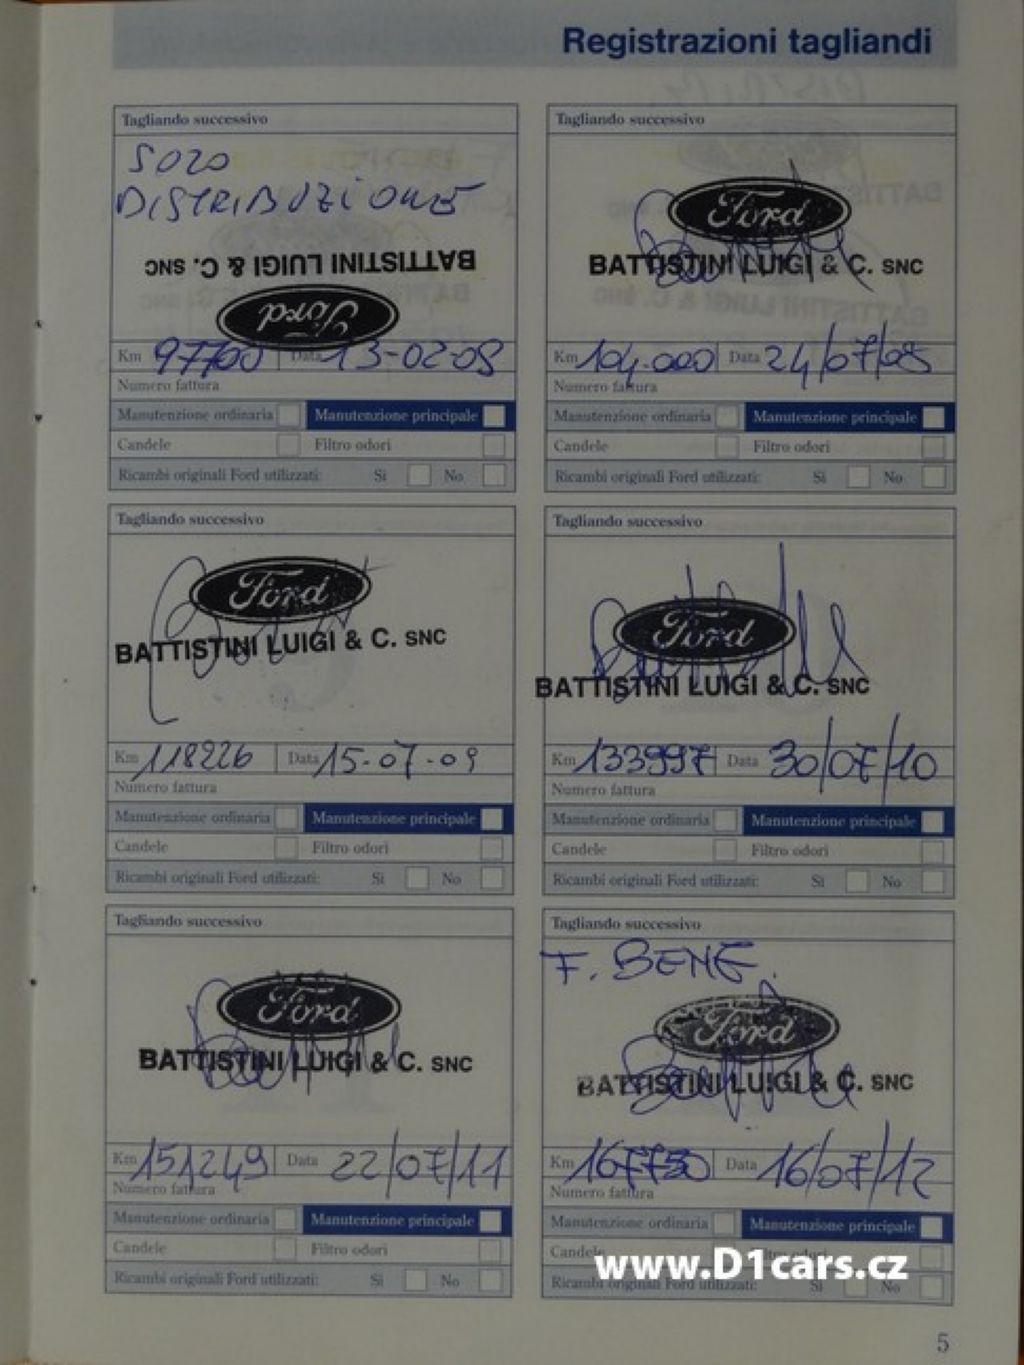 Registrazioni tagliandi
Tagliando successivo
SOLO
DISTRIBUZIONE
BATTISTINI LUIGI & C. SNC
Ford
Km 97700 Data 13-02-08
Numero fattura
Manutenzione ordinaria Manutenzione principale
Candele Filtro odori
Ricambi originali Ford utilizzati: Si No
Tagliando successivo
Ford
BATTISTINI LUIGI & C. SNC
Km 104.000 Data 24/07/08
Numero fattura
Manutenzione ordinaria Manutenzione principale
Candele Filtro odori
Ricambi originali Ford utilizzati: Si No
Tagliando successivo
Ford
BATTISTINI LUIGI & C. SNC
Km 118226 Data 15-07-09
Numero fattura
Manutenzione ordinaria Manutenzione principale
Candele Filtro odori
Ricambi originali Ford utilizzati: Si No
Tagliando successivo
Ford
BATTISTINI LUIGI & C. SNC
Km 133997 Data 30/07/10
Numero fattura
Manutenzione ordinaria Manutenzione principale
Candele Filtro odori
Ricambi originali Ford utilizzati: Si No
Tagliando successivo
Ford
BATTISTINI LUIGI & C. SNC
Km 151249 Data 22/07/11
Numero fattura
Manutenzione ordinaria Manutenzione principale
Candele Filtro odori
Ricambi originali Ford utilizzati: Si No
Tagliando successivo
F. BENE.
Ford
BATTISTINI LUIGI & C. SNC
Km 167750 Data 16/07/12
Numero fattura
Manutenzione ordinaria Manutenzione principale
Candele Filtro odori
www.D1cars.cz
Ricambi originali Ford utilizzati: Si No
5